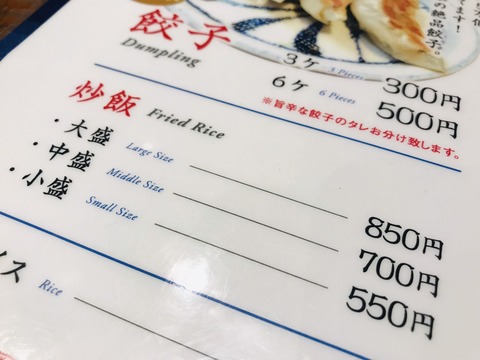 の絶品餃子。
餃子
Dumpling
3ケ 3 Pieces 300円
6ケ 6 Pieces 500円
※旨辛な餃子のタレお分け致します。
炒飯 Fried Rice
・大盛 Large Size 850円
・中盛 Middle Size 700円
・小盛 Small Size 550円
イス Rice